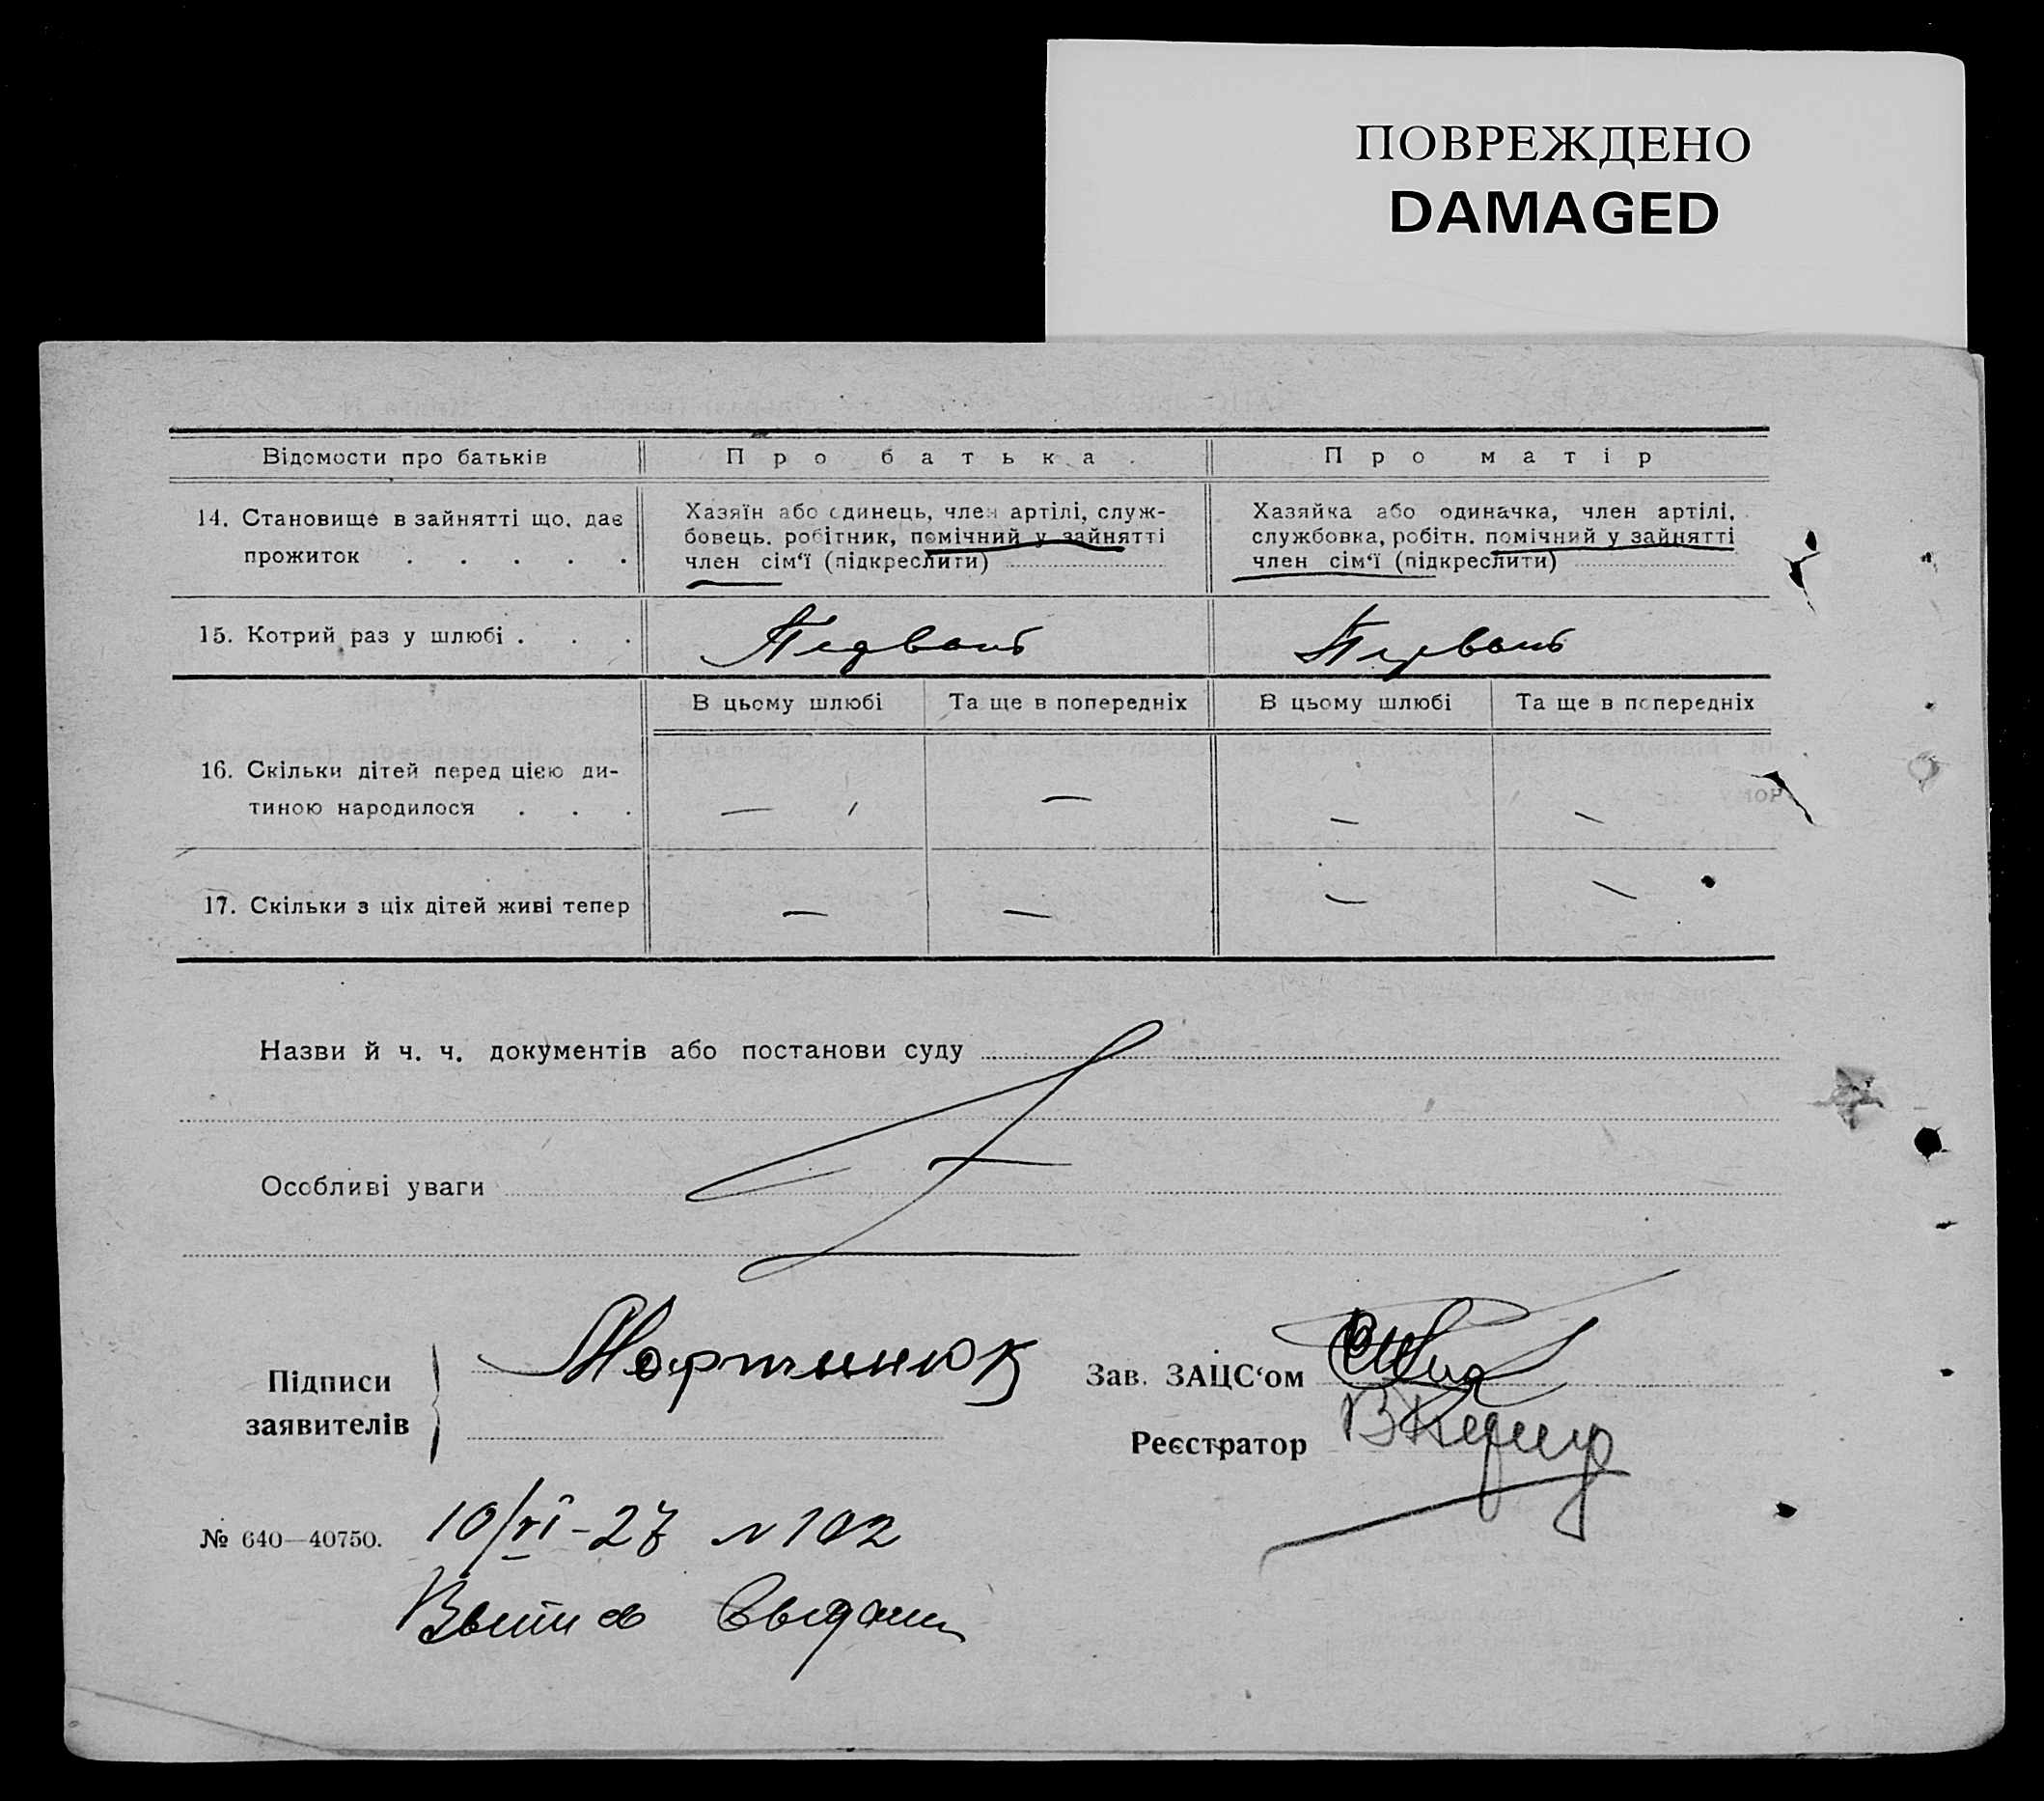 ПОВРЕЖДЕНО
DAMAGED
Відомости про батьків
Про батька
Про матір
14. Становище в зайнятті що, дає
прожиток . . . . .
Хазяїн або одинець, член артілі, служ-
бовець. робітник, помічний у зайнятті
член сім‘ї (підкреслити)
Хазяйка або одиначка, член артілі,
службовка, робітн. помічний у зайнятті
член сім‘ї (підкреслити)
15. Котрий раз у шлюбі . . .
В цьому шлюбі
Та ще в попередніх
В цьому шлюбі
Та ще в попередніх
16. Скільки дітей перед цією ди-
тиною народилося . . .
— —
— —
17. Скільки з ціх дітей живі тепер
— —
— —
Назви й ч. ч. документів або постанови суду
Особливі уваги
Підписи
заявителів
Мартинюк
Зав. ЗАЦС‘ом
Реєстратор
№ 640—40750.
10/VI-27 N 102